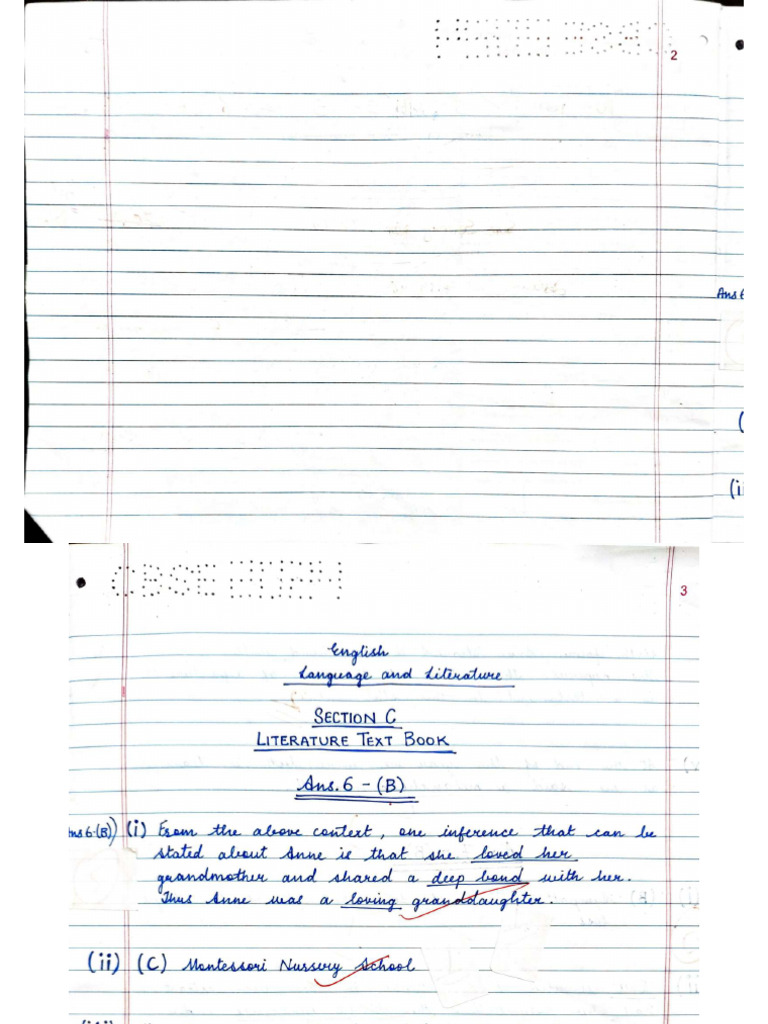 2
Ans 6
(
(i
CBSE
3
English
Language and Literature
SECTION C
LITERATURE TEXT BOOK
Ans. 6 - (B)
Ans 6-(B)) (i) From the above context, one inference that can be
stated about Anne is that she loved her
grandmother and shared a deep bond with her.
Thus Anne was a loving granddaughter.
(ii) (C) Montessori Nussery School